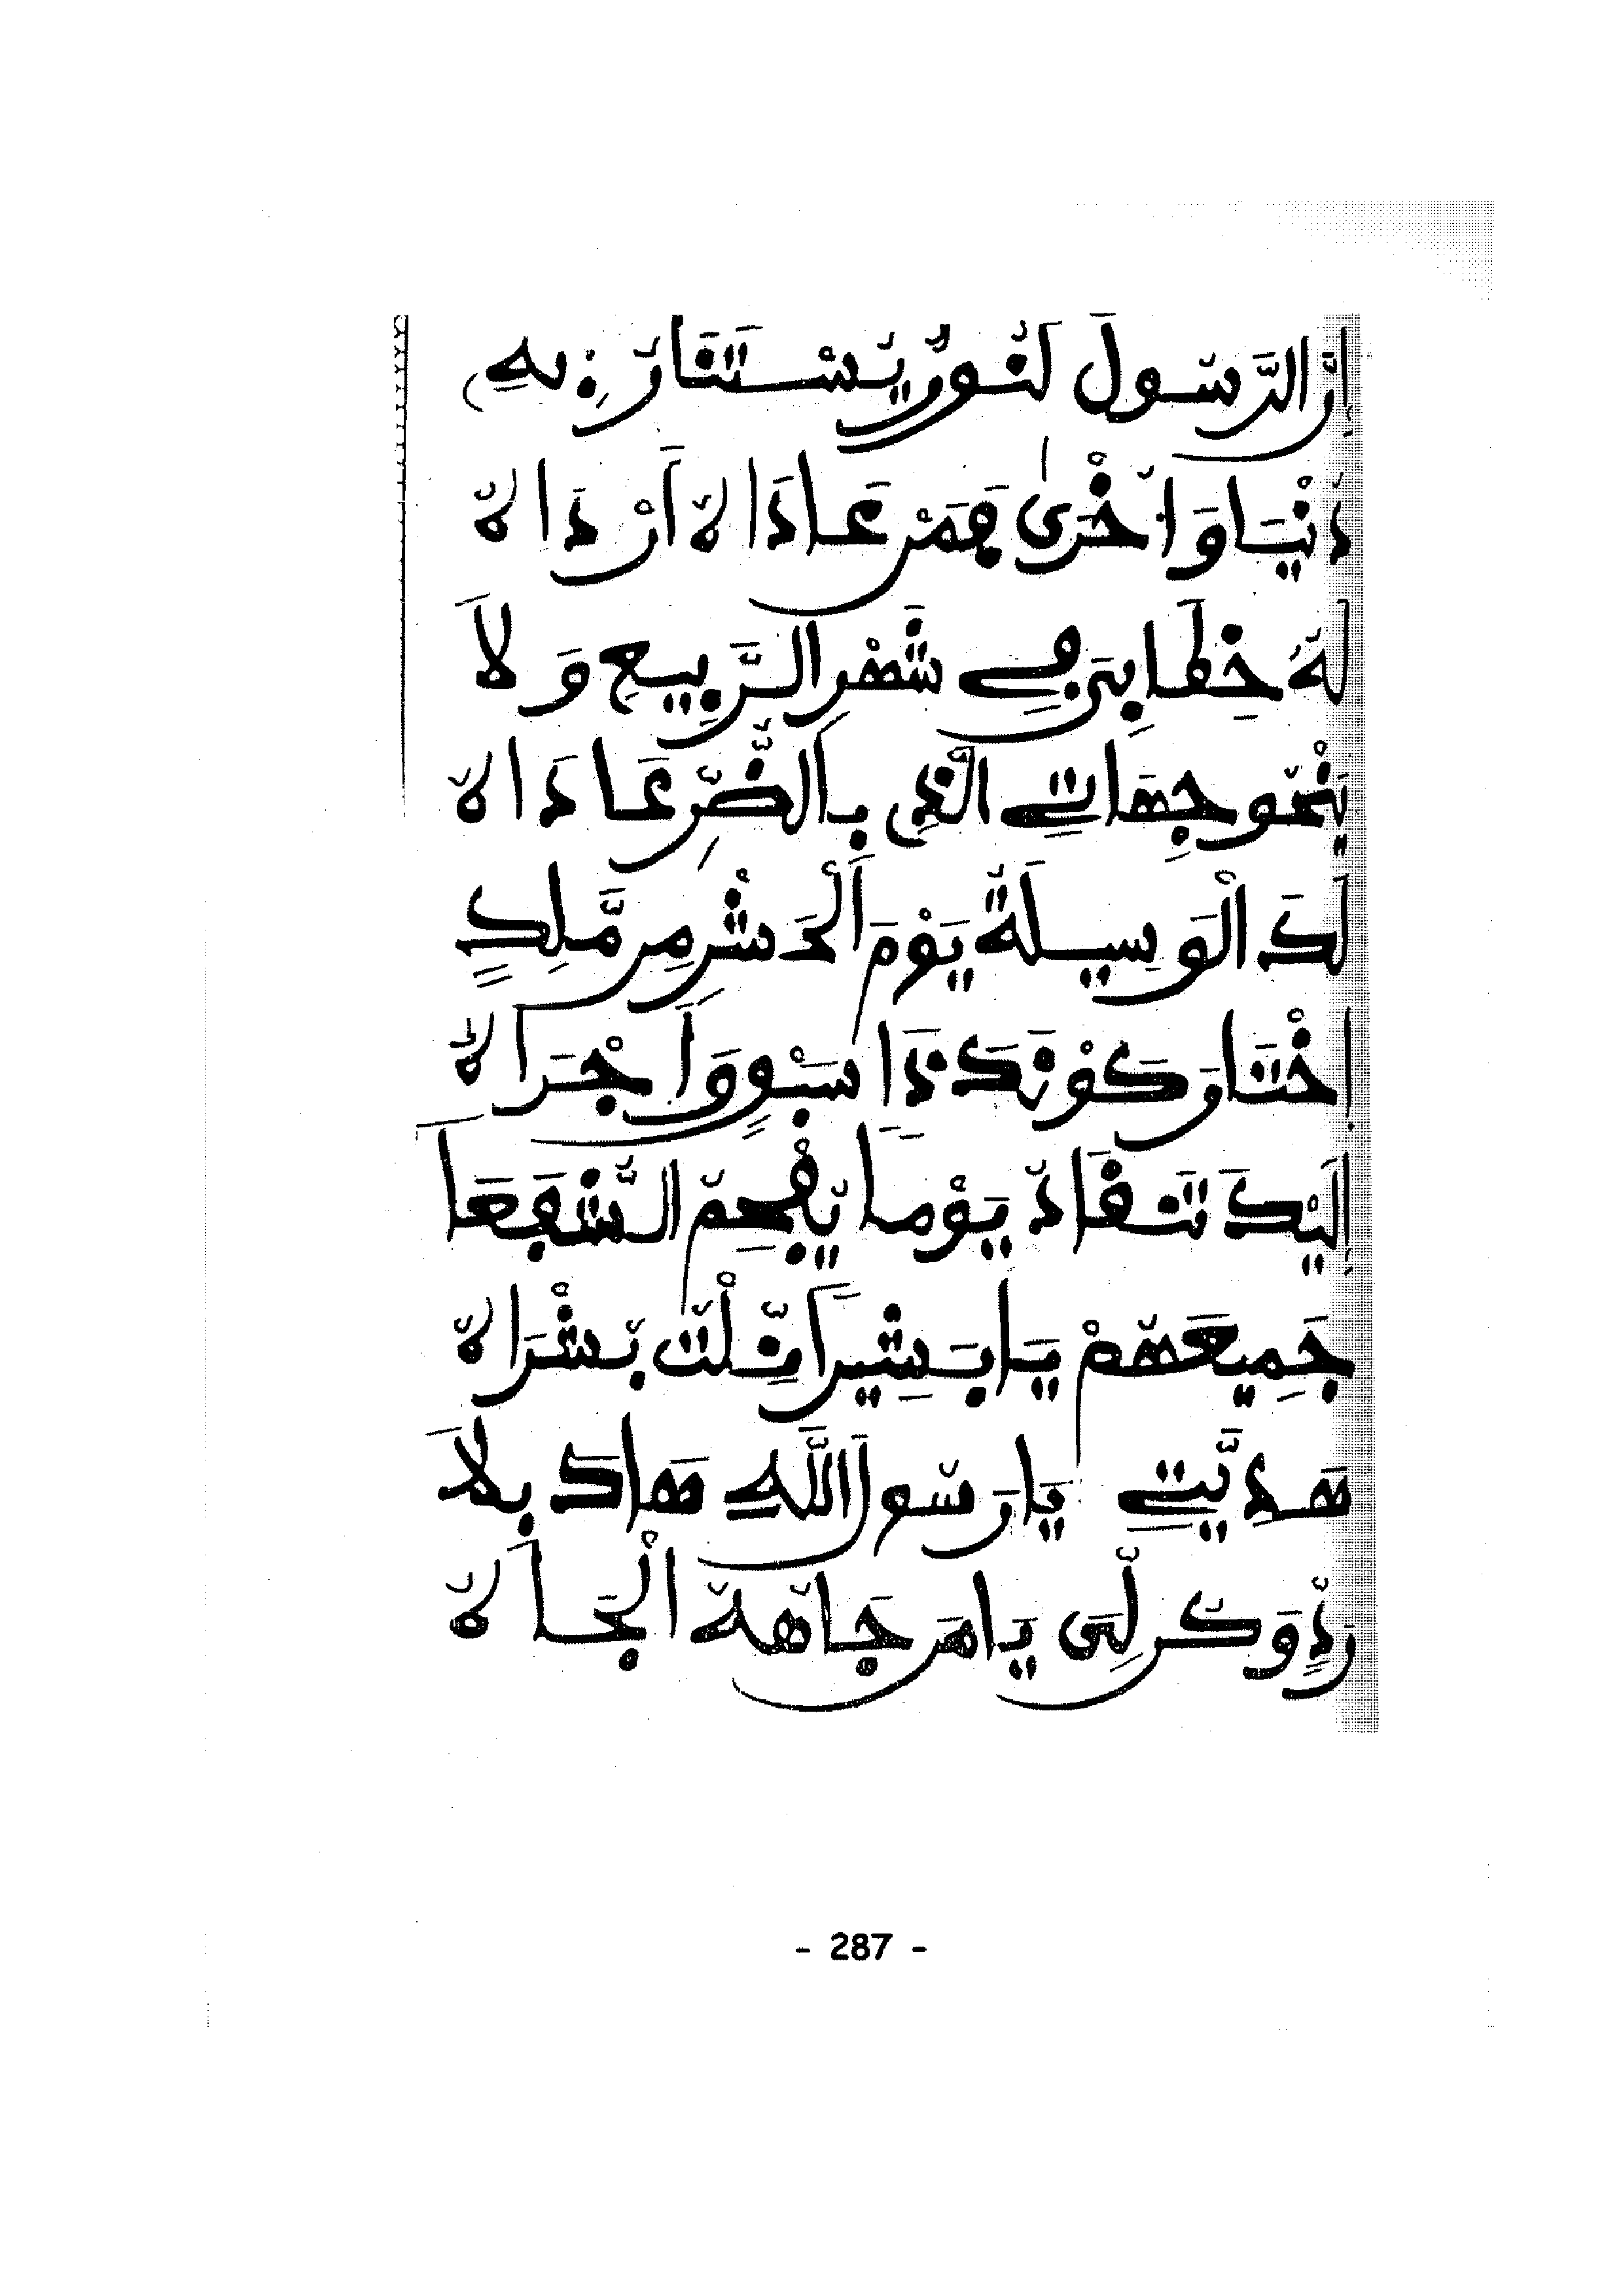 إنَّ الرَّسُولَ لَنُورٌ يُسْتَنَارُ بِهِ
دُنْيَا وَأُخْرَىٰ فَمَنْ عَادَاهُ أَرْدَاهُ
لَهُ خِطَابِىَ فِى شَهْرِ الرَّبِيعِ وَلَا
يَنْحُو جِهَاتِى الَّذِى بِالضُّرِّ عَادَاهُ
لَكَ الْوَسِيلَةُ يَوْمَ الْحَشْرِ مِن مَّلِكٍ
اخْتَارَ كَوْنَكَ ذَا سَبْقٍ وَأَجْرَاهُ
إلَيْكَ تَنْقَادُ يَوْمًا يُفْحِمُ الشُّفَعَا
جَمِيعَهُمْ يَا بَشِيرًا نِلْتُ بُشْرَاهُ
هَدِيَّتِى يَا رَسُولَ اللَّهِ هَاكَ بِلَا
رَدٍّ وَكُن لِّى يَا مَن جَاهُهُ الْجَاهُ
- 287 -